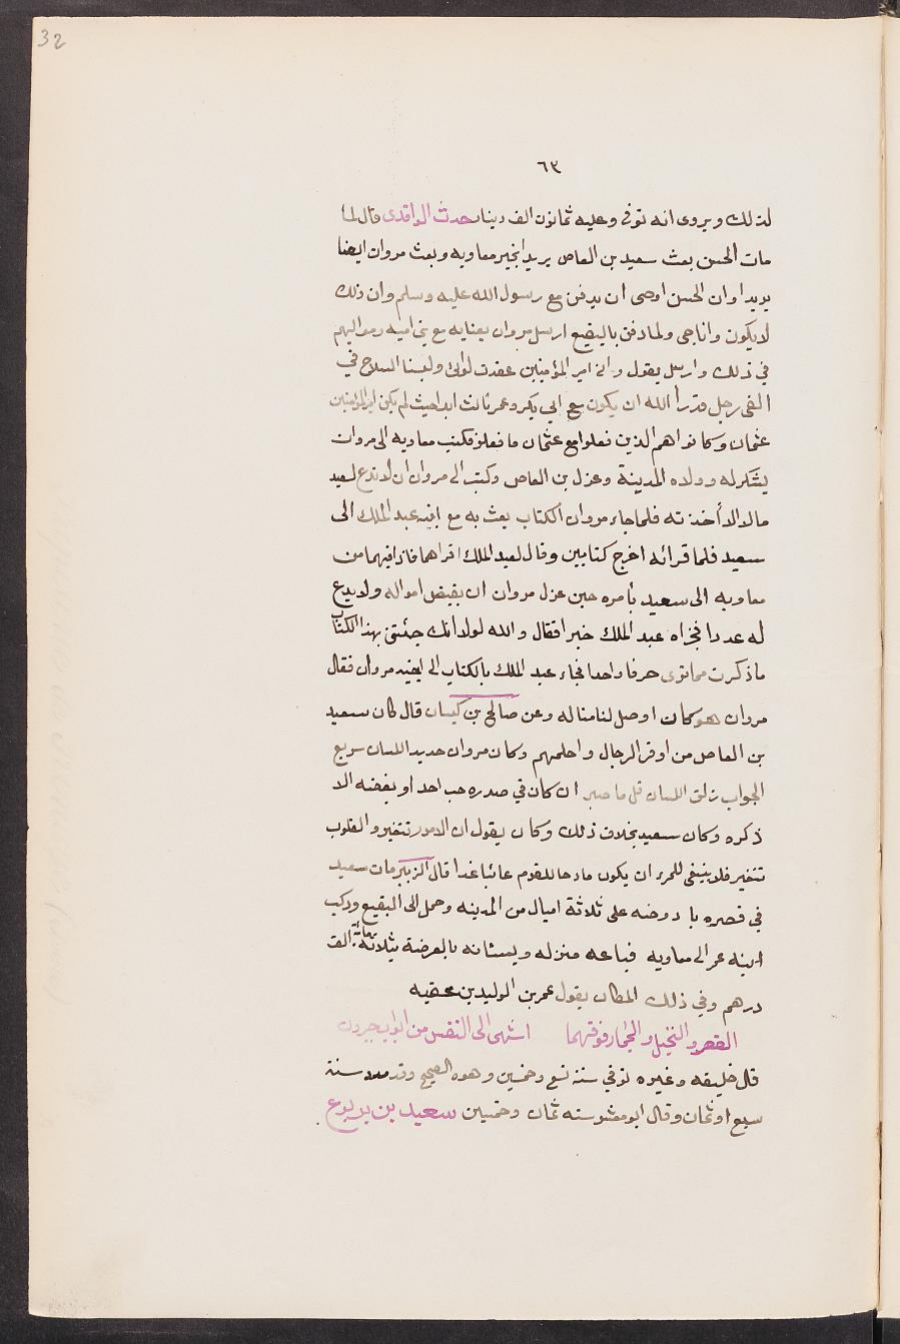 32
٦٣
لذلك ويروى انه توفي وعليه ثمانون الف دينار حدث الواقدى قال لما
مات الحسن بعث سعيد بن العاص بريدا بخبر معاويه وبعث مروان ايضا
بريدا وان الحسن اوصى ان يدفن مع رسول الله عليه وسلم وان ذلك
لا يكون وانا حي ولما دفن بالبقيع ارسل مروان بعنايه مع بني اميه ومواليهم
في ذلك وارسل يقول واني امير المؤمنين عقدت لوائي ولبسنا السلاح في
الفي رجل فدرأ الله ان يكون مع ابي بكر وعمر ثالث ابدا حيث لم يكن امير المؤمنين
عثمان وكانوا هم الذين فعلوا مع عثمان ما فعلوا فكتب معاويه الى مروان
يشكر له وولاه المدينة وعزل بن العاص وكتب الى مروان ان لا تدع لسعيد
مالا الا أخذته فلما جاء مروان الكتاب بعث به مع ابنه عبد الملك الى
سعيد فلما قرائه اخرج كتابين وقال لعبد الملك اقراهما فاذا فيهما من
معاويه الى سعيد يأمره حين عزل مروان ان يقبض امواله ولا يدع
له عددا فجزاه عبد الملك خيرا فقال والله لولا انك جئتنى بهذا الكتاب
ما ذكرت مما ترى حرفا واحدا فجاء عبد الملك بالكتاب الى ابيه مروان فقال
مروان هو كان اوصل لنا منا له وعن صالح بن كيسان قال كان سعيد
بن العاص من اوقر الرجال واحلمهم وكان مروان حديد اللسان سريع
الجواب ذلق اللسان قل ما صبر ان كان في صدره حب احد او بغضه الا
ذكره وكان سعيد بخلاف ذلك وكان يقول ان الامور تتغير والقلوب
تتغير فلا ينبغى للمرء ان يكون مادحا للقوم عائبا غدا قال الزبير مات سعيد
في قصره با دوضه على ثلاثة اميال من المدينه وحمل الى البقيع وركب
ابنه عمر الى معاويه فباعه منزله وبستانه بالعرضة بثلاثمائة الف
درهم وفي ذلك المكان يقول عمر بن الوليد بن عقبه
القصر والنخيل والجمار فوقهما اشهى الى النفس من ابواب جيرون
قال خليفه وغيره توفي سنة تسع وخمسين وهوه الصحيح وقد سنة
سبع او ثمان وقال ابو معشر سنه ثمان وخمسين سعيد بن يربوع